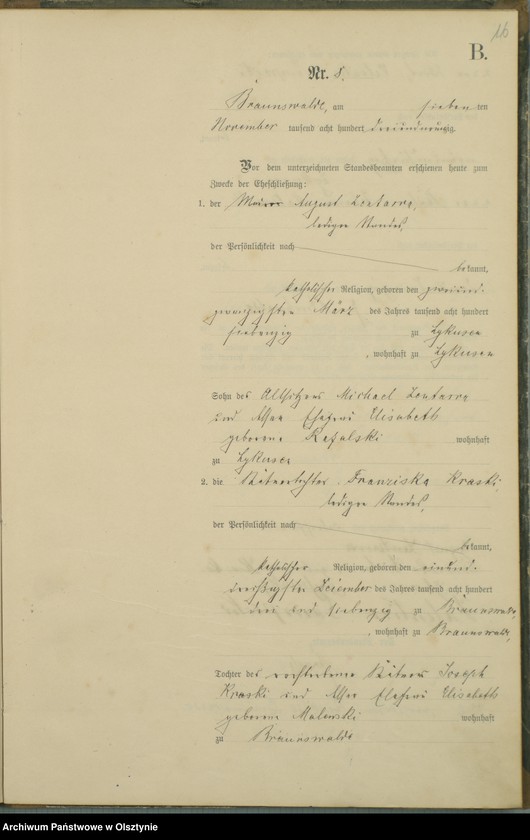 16
B.
Nr. 8.
Braunswalde, am sieben ten
November tausend acht hundert dreiundneunzig.
Vor dem unterzeichneten Standesbeamten erschienen heute zum
Zwecke der Eheschließung:
1. der Maurer August Zentarra,
ledigen Standes,
der Persönlichkeit nach
bekannt,
katholischer Religion, geboren den zweiund-
zwanzigsten März des Jahres tausend acht hundert
siebenzig zu Lykusen
, wohnhaft zu Lykusen
Sohn des Altsitzers Michael Zentarra
und dessen Ehefrau Elisabeth
geborene Rafalski wohnhaft
zu Lykusen
2. die Kätnertochter Franziska Kraski,
ledigen Standes,
der Persönlichkeit nach
bekannt,
katholischer Religion, geboren den einund-
dreißigsten Dezember des Jahres tausend acht hundert
drei und siebenzig zu Braunswalde,
, wohnhaft zu Braunswalde,
Tochter des verstorbenen Kätners Joseph
Kraski und dessen Ehefrau Elisabeth
geborene Malewski wohnhaft
zu Braunswalde
Archiwum Państwowe w Olsztynie